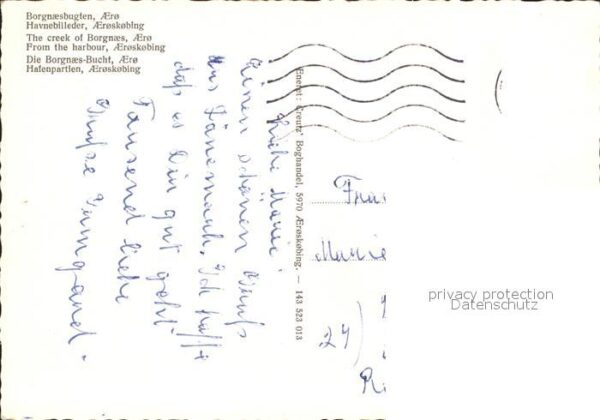 Borgnæsbugten, Ærø
Havnebilleder, Ærøskøbing
The creek of Borgnæs, Ærø
From the harbour, Ærøskøbing
Die Borgnæs-Bucht, Ærø
Hafenpartien, Ærøskøbing
Eneret: Creutz' Boghandel, 5970 Ærøskøbing. — 143 523 013
Liebe
Einen schönen Gruß
aus Dänemark. Ich hoffe
daß es Dir gut geht.
Tausend liebe
Grüße Irmgard.
Frau
24)
privacy protection
Datenschutz